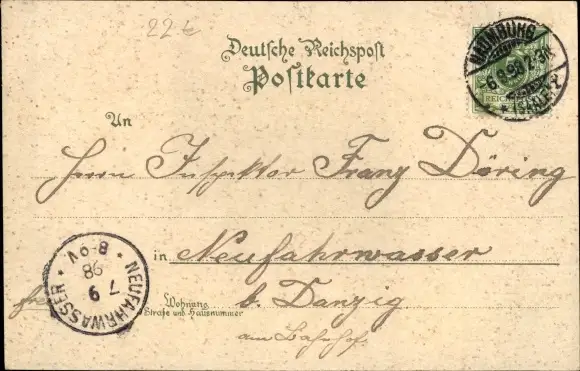 22 €
Deutsche Reichspost
Postkarte
NAUMBURG
6.9.98. 2-3N.
* (SAALE) 2
REICHSPOST
An
Herrn Inspektor Franz Döring
in Neufahrwasser
b. Danzig
am Bahnhof.
Wohnung
Straße und Hausnummer
NEUFAHRWASSER
7 9
98
8-9V